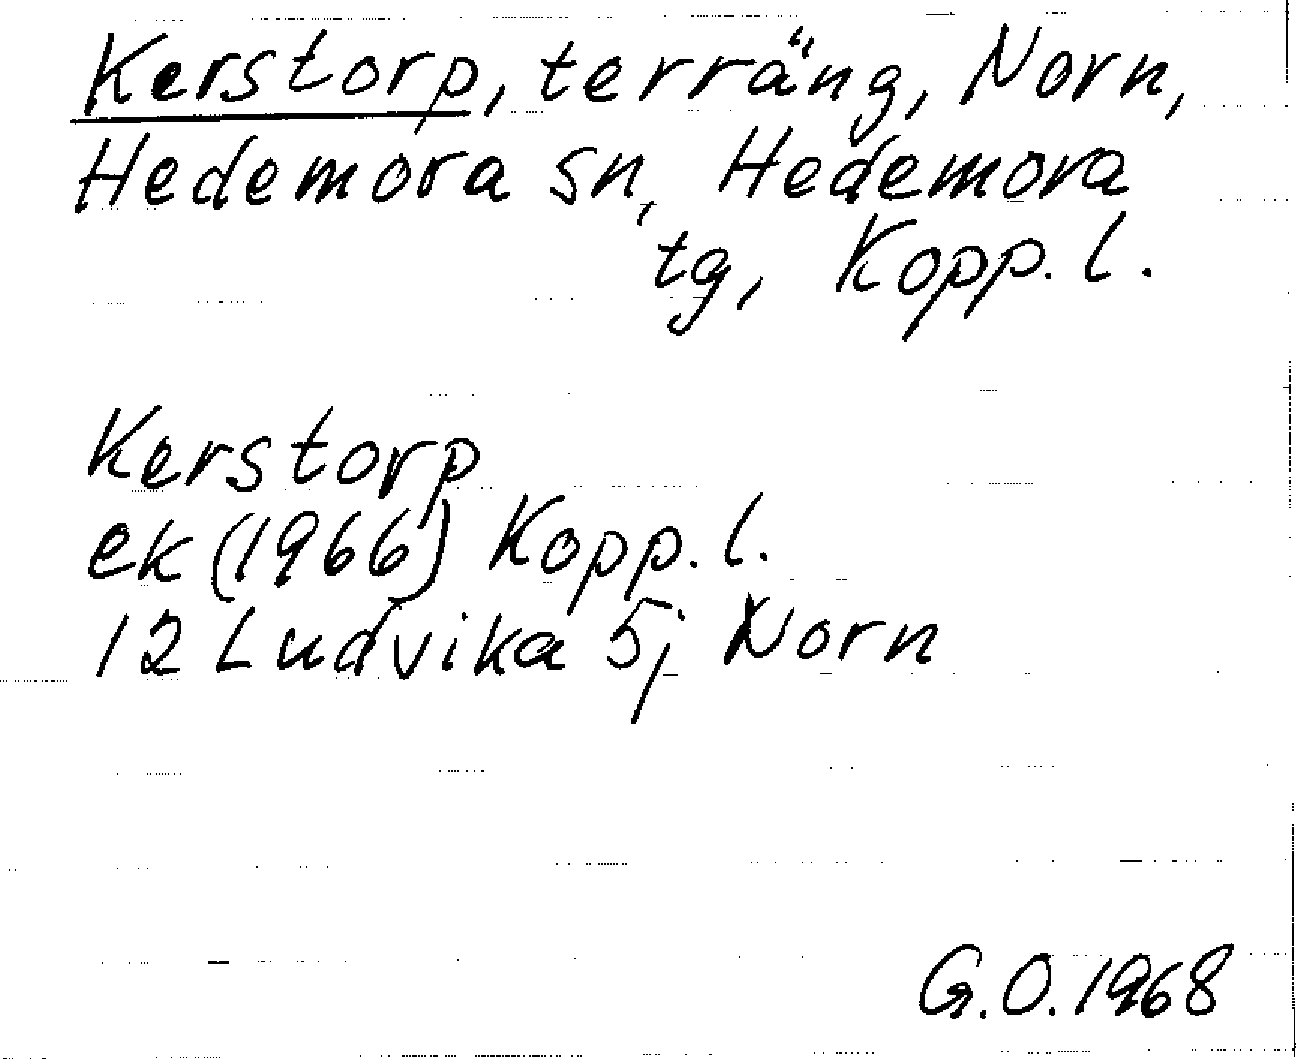 Kerstorp, terräng, Norn,
Hedemora sn, Hedemora
tg, Kopp. l.
Kerstorp
ek (1966) Kopp. l.
12 Ludvika 5j Norn
G.O. 1968